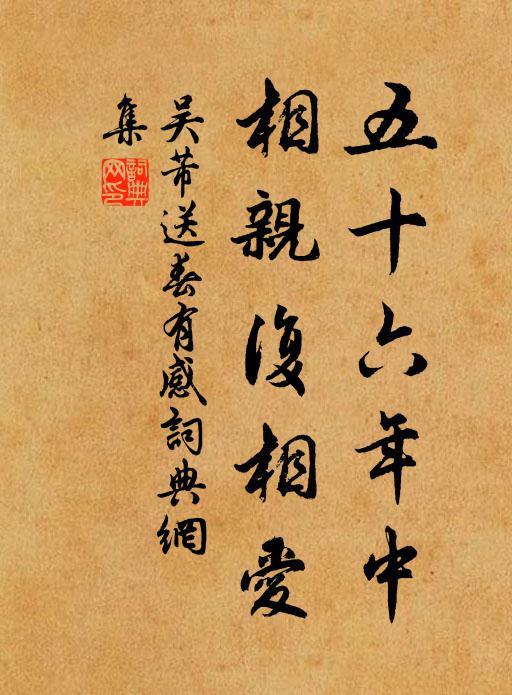 五十六年中
相親復相愛
吴芾送春有感詞典網
集
詞典
网印